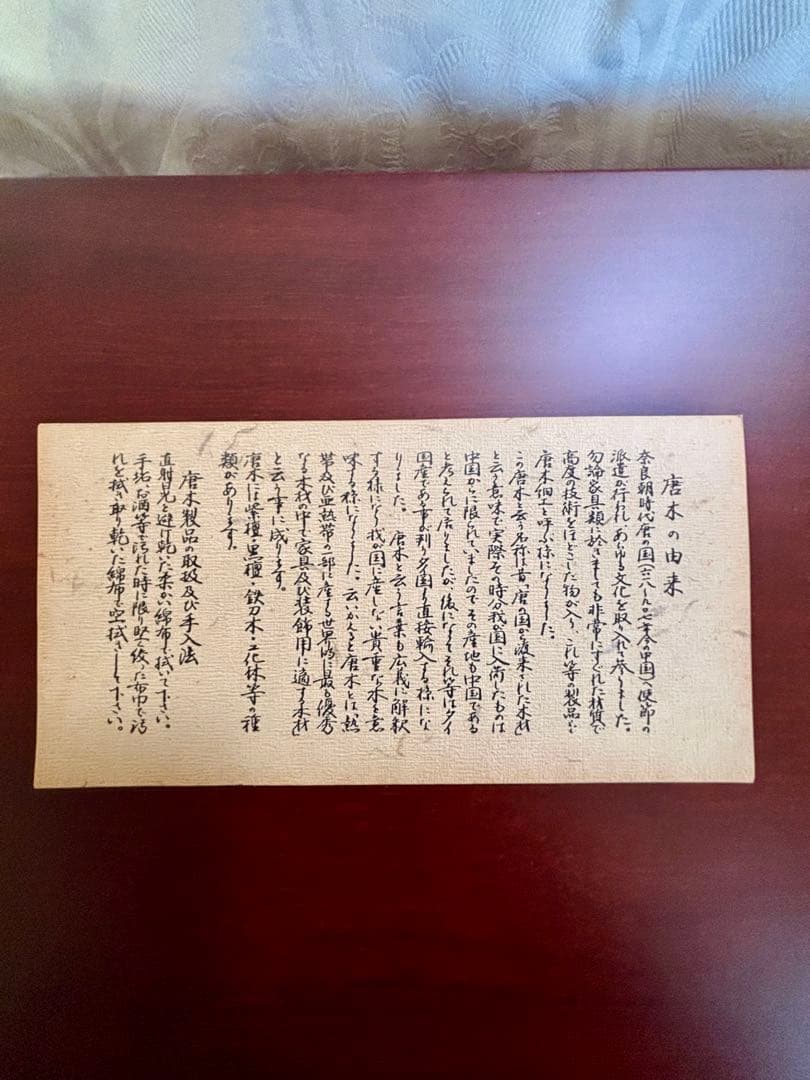 唐木の由来
奈良朝時代唐の国(六一八～九〇七年今の中国)へ使節の
派遣が行われ、あらゆる文化を取り入れて参りました。
勿論家具類に於きましても非常にすぐれた材質で
高度の技術をほどこした物が入り、これ等の製品を
唐木細工と呼ぶ様になりました。
この唐木と云う名称は昔「唐」の国から渡来された木材
と云う意味で実際その時分我が国に入荷したものは
中国からに限られていましたのでその産地も中国である
と考えられて居りましたが、後になってそれ等はタイ
国産である事が判りタイ国より直接輸入する様にな
りました。 唐木と云う言葉も広義に解釈
する様になり我が国に産しない貴重な木を意
味する様になりました。云いかえると唐木とは熱
帯及び亜熱帯の一部に産する世界的に最も優秀
なる木材の中で家具及び装飾用に適する木材
と云う事に成ります。
唐木には紫檀・黒檀・鉄刀木・花林等の種
類があります。
唐木製品の取扱及び手入法
直射日光を避け乾いた柔かい綿布で拭いて下さい。
手垢・お酒等で汚れた時に限り堅く絞った布巾で汚
れを拭き取り乾いた綿布で空拭きして下さい。